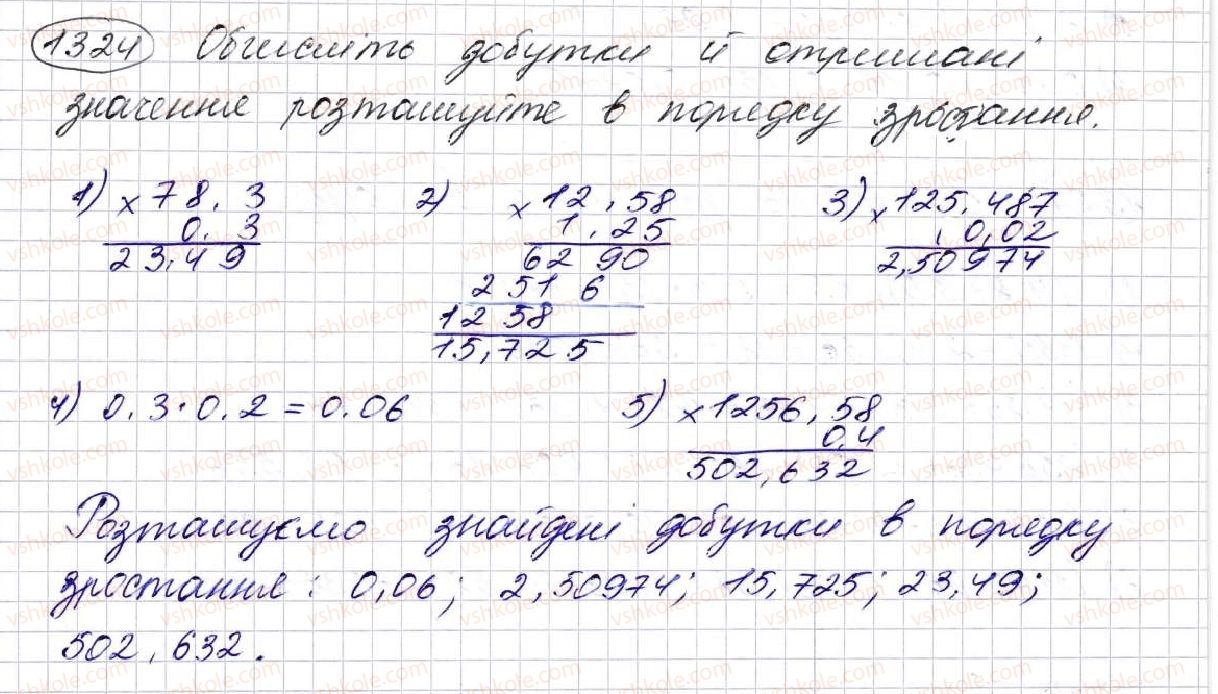 1324 Обчисліть добутки й отримані
значення розташуйте в порядку зростання.
1) × 78.3
0.3
23.49
2) × 12,58
1,25
62 90
2 51 6
12 58
15,725
3) × 125,487
0,02
2,50974
4) 0.3 · 0.2 = 0.06
5) × 1256,58
0,4
502,632
Розташуємо знайдені добутки в порядку
зростання: 0,06; 2,50974; 15,725; 23,49;
502,632.